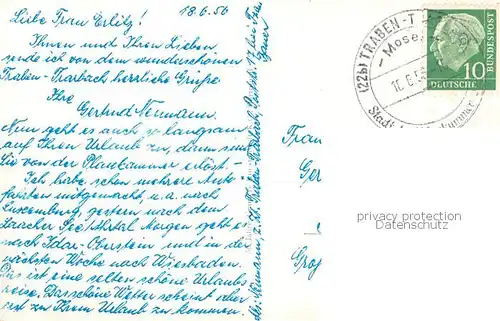 18.6.56
Liebe Frau Erlitz!
Ihnen und Ihren Lieben
sende ich von dem wunderschönen
Traben-Trarbach herrliche Grüße
Ihre
Gertrud Neumann.
Nun geht es auch so langsam
auf Ihren Urlaub zu, dann sind
Sie von der Plankammer erlöst.-
Ich habe schon mehrere Auto-
fahrten mitgemacht, u.a. nach
Luxemburg, gestern nach dem
Laacher See/Ahrtal. Morgen geht es
nach Idar-Oberstein und in der
nächsten Woche nach Wiesbaden.
Das ist eine selten schöne Urlaubs
reise. Das schöne Wetter scheint aber
erst zu Ihrem Urlaub zu kommen.
Neumann, z. Zt. Traben-Trarbach, bei Frau
(22b) TRABEN-T
- Mosel
18.6.5
Stadt
10
DEUTSCHE
BUNDESPOST
Frau
Ger
Groß
privacy protection
Datenschutz